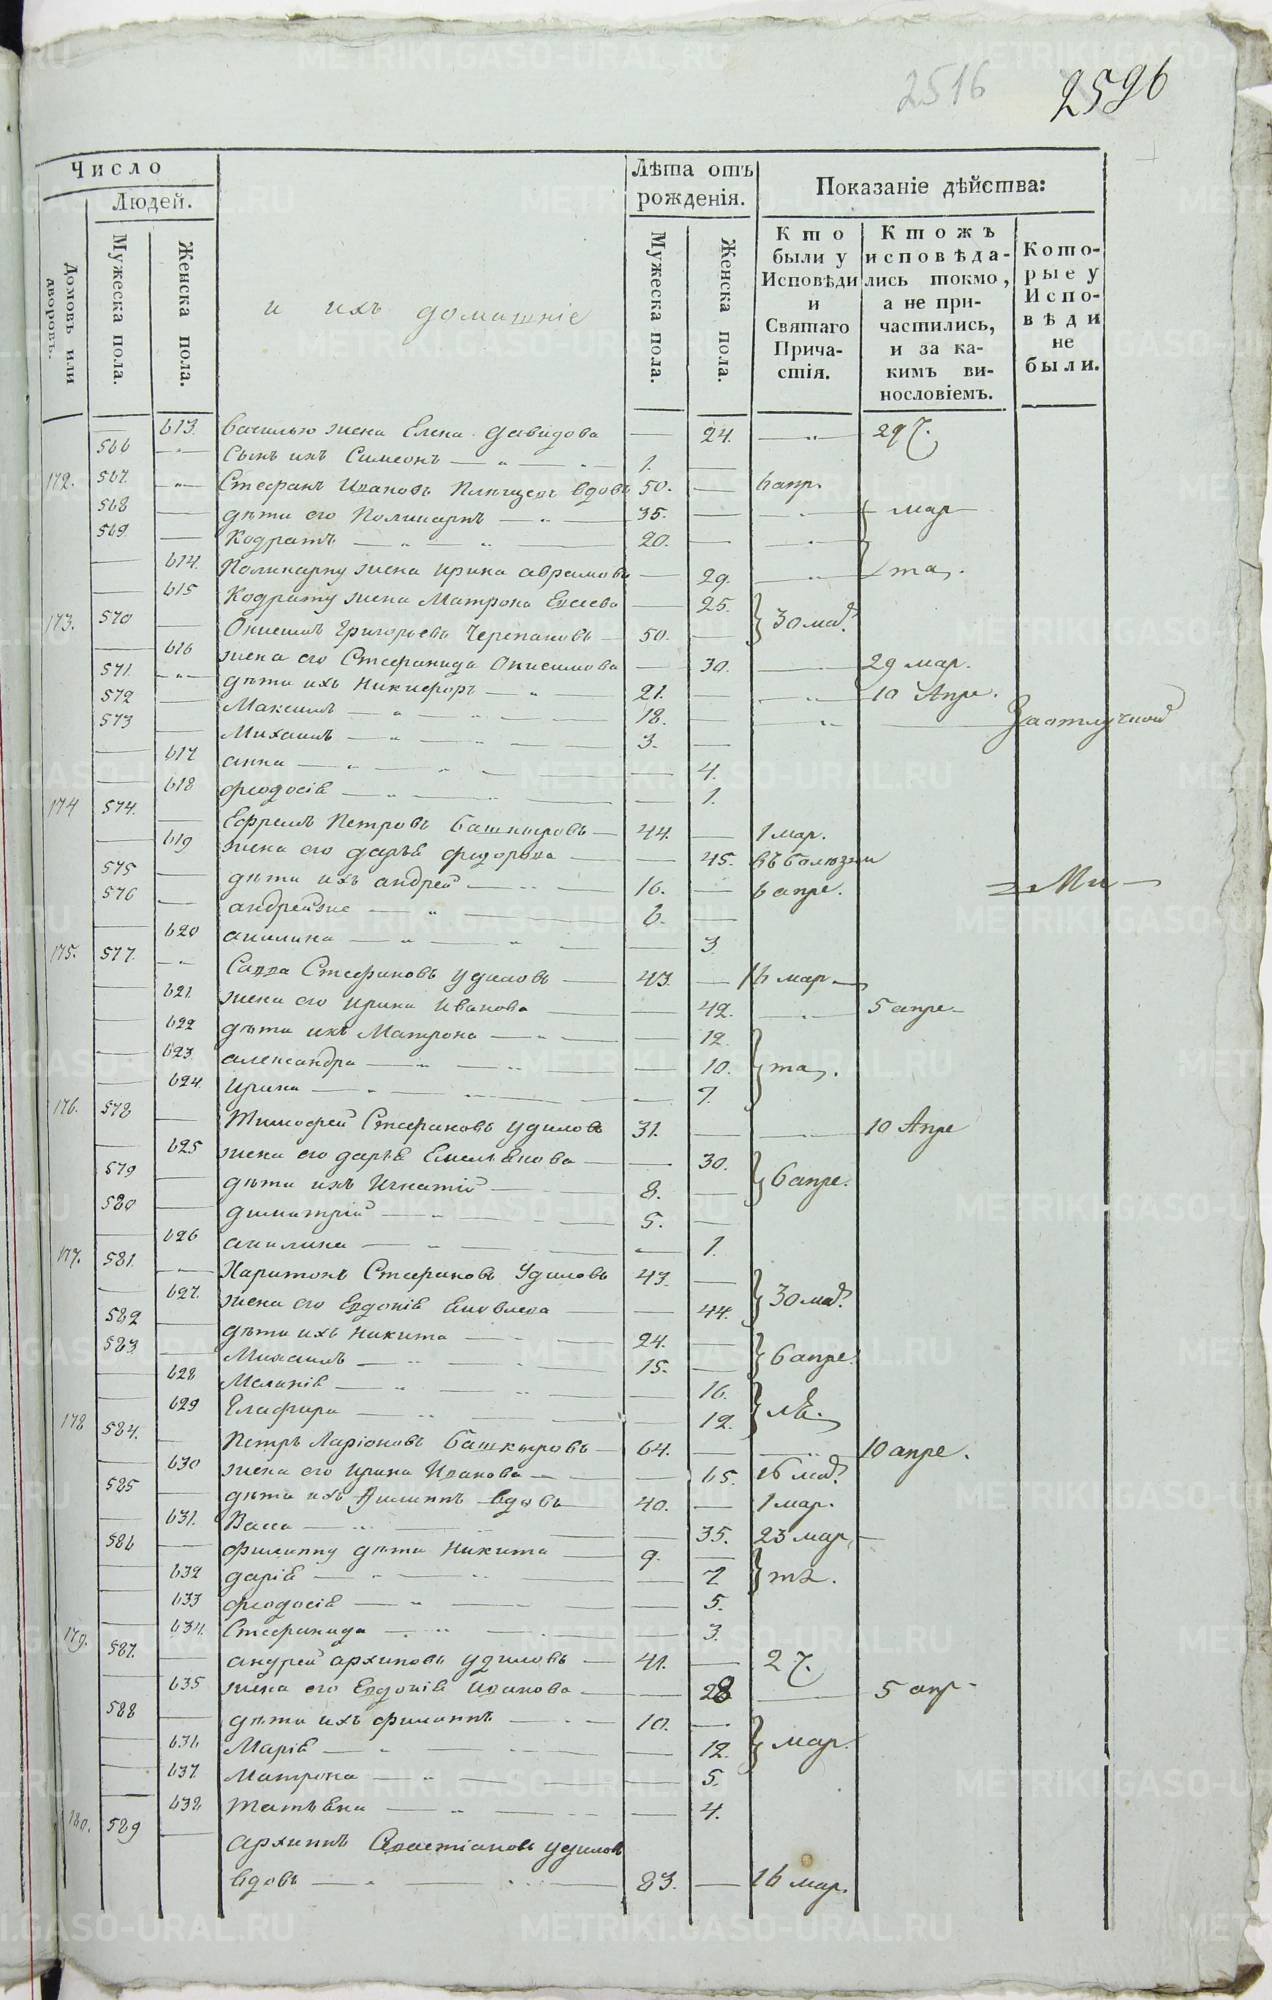 2516 2596
Число
Людей.
Домовъ или дворовъ.
Мужеска пола.
Женска пола.
и ихъ домашніе
Лѣта отъ рожденія.
Мужеска пола.
Женска пола.
Показаніе дѣйства:
Кто были у Исповѣди и Святаго Причастія.
Ктожъ исповѣдались токмо, а не причастились, и за какимъ винословіемъ.
Которые у Исповѣди не были.
613. Василью жена Елена Давидова — 24. — 29
566 Сынъ ихъ Симеонъ — 1. —
172. 567. Стефанъ Ивановъ вдовъ 50. — 6 апр.
568 дѣти его Поликарпъ — 35. — мар
569. Кодратъ — 20. —
614. Поликарпу жена Ирина Аврамова — 29.
615 Кодрату жена Матрона Евсеева — 25.
173. 570 Онисимъ Григорьевъ Черепановъ — 50. — 30 мар.
616 жена его Стефанида Онисимова — 30. — 29 мар.
571. дѣти ихъ Никифоръ — 21. — 10 Апре.
572 Максимъ — 18. — За отлучкой
573 Михаилъ — 3. —
617 анна — 4.
618 феодосія — 1.
174 574. Ефремъ Петровъ Башкыровъ — 44. — 1 мар.
619 жена его дарья федорова — 45. въ болѣзни
575 дѣти ихъ андрей — 16. — 6 апре.
576 андрейже — 6. —
620 акилина — 3.
175. 577. Савва Стефановъ Удиловъ — 43. — 16 мар
621. жена его Ирина Иванова — 42. — 5 апре
622 дѣти ихъ Матрона — 12.
623. александра — 10.
624. Ирина — 7.
176. 578 Тимофей Стефановъ Удиловъ 31. — 10 Апре
625 жена его дарья Емельянова — 30.
579 дѣти ихъ Игнатій — 8. — 6 апре.
580 димитрій — 5. —
626 акилина — 1.
177. 581. Харитонъ Стефановъ Удиловъ 43. —
627. жена его Евдокія Яковлева — 44. 30 мар.
582 дѣти ихъ Никита — 24. —
583. Михаилъ — 15. — 6 апре.
628 Меланія — 16.
629 Глафира — 12.
178 584. Петръ Ларіоновъ Башкыровъ — 64. — 10 апре.
630 жена его Ирина Иванова — 65. 16 мар.
585 дѣти ихъ Филиппъ вдовъ 40. — 1 мар.
631. Васса — 35. 23 мар.
586 филиппу дѣти Никита — 9. —
632 дарія — 7
633 феодосія — 5.
634. Стефанида — 3.
179. 587. андрей архиповъ Удиловъ — 41. — 27.
635 жена его Евдокія Иванова — 28 — 5 апр
588 дѣти ихъ филиппъ — 10. —
636 Марія — 12. мар.
637. Матрона — 5.
638 татьяна — 4.
180. 589 архиппъ Севастіановъ Удиловъ
вдовъ — 83. — 16 мар.